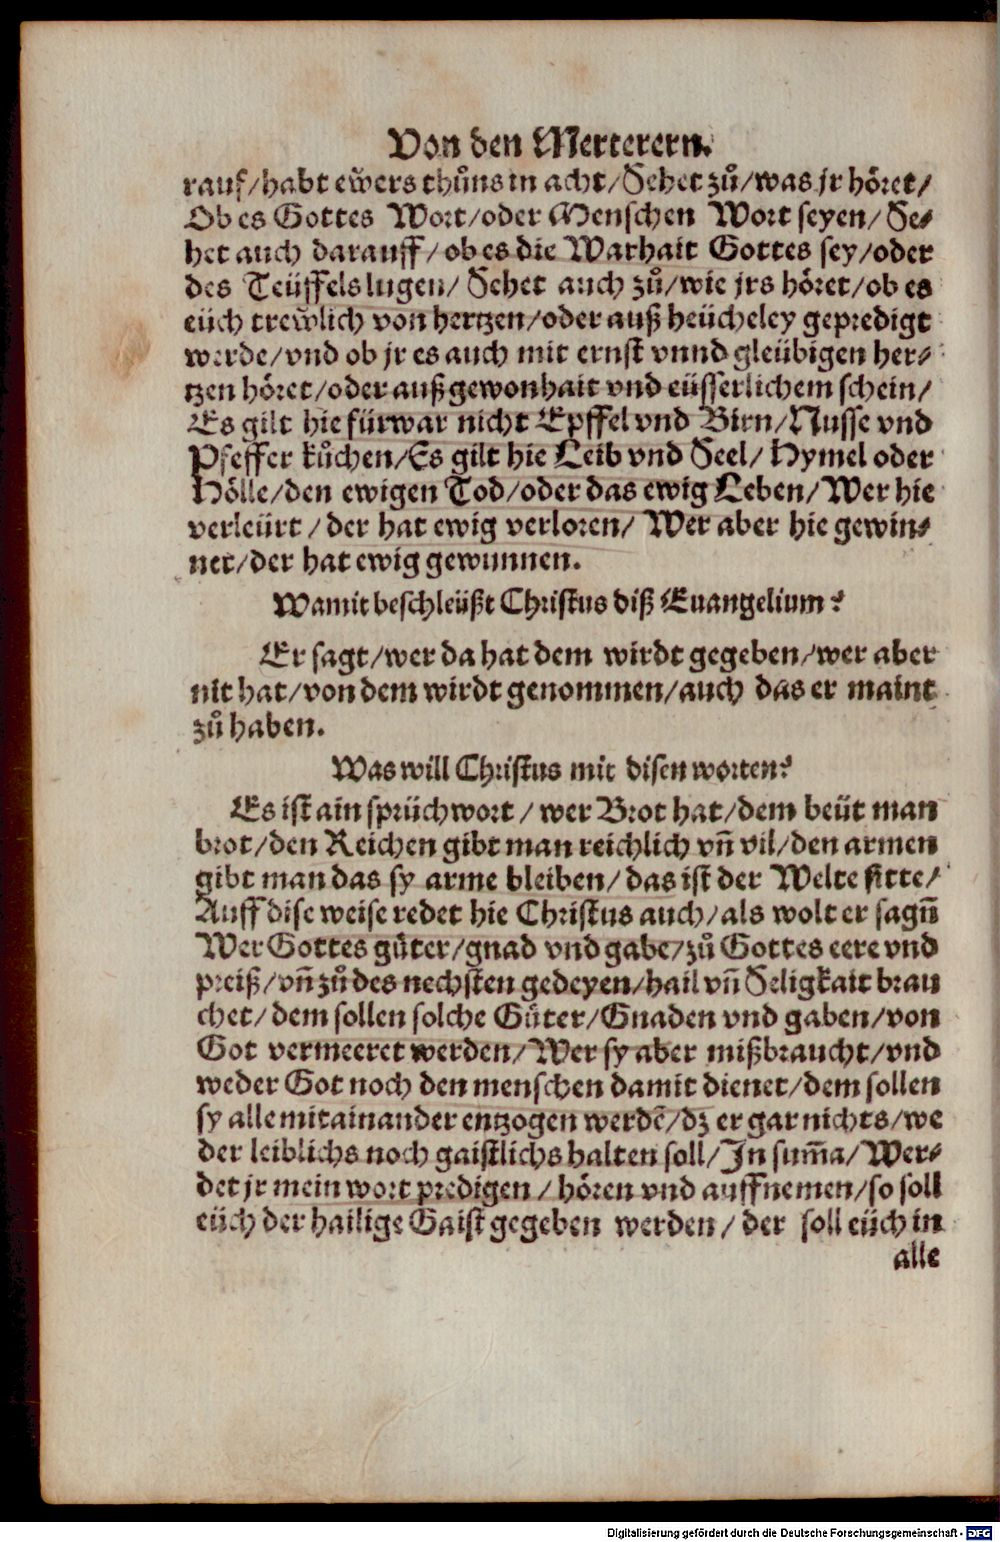 Von den Merterern.
rauf/habt eẅers thůns in acht/Sehet zů/was jr höret/
Ob es Gottes Wort/oder Menschen Wort seyen/Se-
het auch darauff/ob es die Warhait Gottes sey/oder
des Teüffels lugen/Sehet auch zů/wie jrs höret/ob es
eüch treẅlich von hertzen/oder auß heücheley gepredigt
werde/vnd ob jr es auch mit ernst vnnd gleübigen her-
tzen höret/oder auß gewonhait vnd eüsserlichem schein/
Es gilt hie fürwar nicht Epffel vnd Birn/Nusse vnd
Pfeffer kůchen/Es gilt hie Leib vnd Seel/Hymel oder
Hölle/den ewigen Tod/oder das ewig Leben/Wer hie
verleürt/der hat ewig verloren/Wer aber hie gewin-
net/der hat ewig gewunnen.
Wamit beschleüßt Christus diß Euangelium?
Er sagt/wer da hat dem wirdt gegeben/wer aber
nit hat/von dem wirdt genommen/auch das er maint
zů haben.
Was will Christus mit disen worten?
Es ist ain sprüchwort/wer Brot hat/dem beüt man
brot/den Reichen gibt man reichlich vñ vil/den armen
gibt man das sy arme bleiben/das ist der Welte sitte/
Auff dise weise redet hie Christus auch/als wolt er sagñ
Wer Gottes güter/gnad vnd gabe/zů Gottes eere vnd
preiß/vñ zů des nechsten gedeyen/hail vñ Seligkait brau
chet/dem sollen solche Güter/Gnaden vnd gaben/von
Got vermeeret werden/Wer sy aber mißbraucht/vnd
weder Got noch den menschen damit dienet/dem sollen
sy alle mitainander entzogen werdẽ/dz er gar nichts/we
der leiblichs noch gaistlichs halten soll/In sum̃a/Wer-
det jr mein wort predigen/hören vnd auffnemen/so soll
eüch der hailige Gaist gegeben werden/der soll eüch in
alle
Digitalisierung gefördert durch die Deutsche Forschungsgemeinschaft - DFG